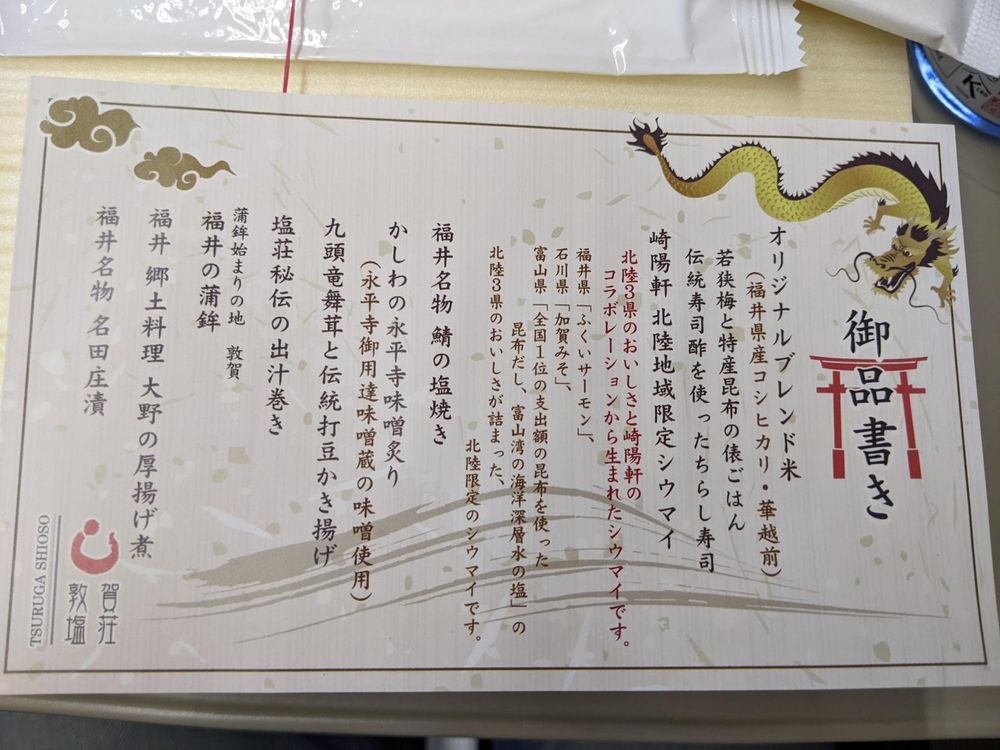 御品書き
オリジナルブレンド米
（福井県産コシヒカリ・華越前）
若狭梅と特産昆布の俵ごはん
伝統寿司酢を使ったちらし寿司
崎陽軒 北陸地域限定シウマイ
北陸3県のおいしさと崎陽軒の
コラボレーションから生まれたシウマイです。
福井県「ふくいサーモン」、
石川県「加賀みそ」、
富山県「全国1位の支出額の昆布を使った
昆布だし、富山湾の海洋深層水の塩」の
北陸3県のおいしさが詰まった、
北陸限定のシウマイです。
福井名物 鯖の塩焼き
かしわの永平寺味噌炙り
（永平寺御用達味噌蔵の味噌使用）
九頭竜舞茸と伝統打豆かき揚げ
塩荘秘伝の出汁巻き
蒲鉾始まりの地 敦賀
福井の蒲鉾
福井 郷土料理 大野の厚揚げ煮
福井名物 名田庄漬
TSURUGA SHIOSO
敦賀
塩荘